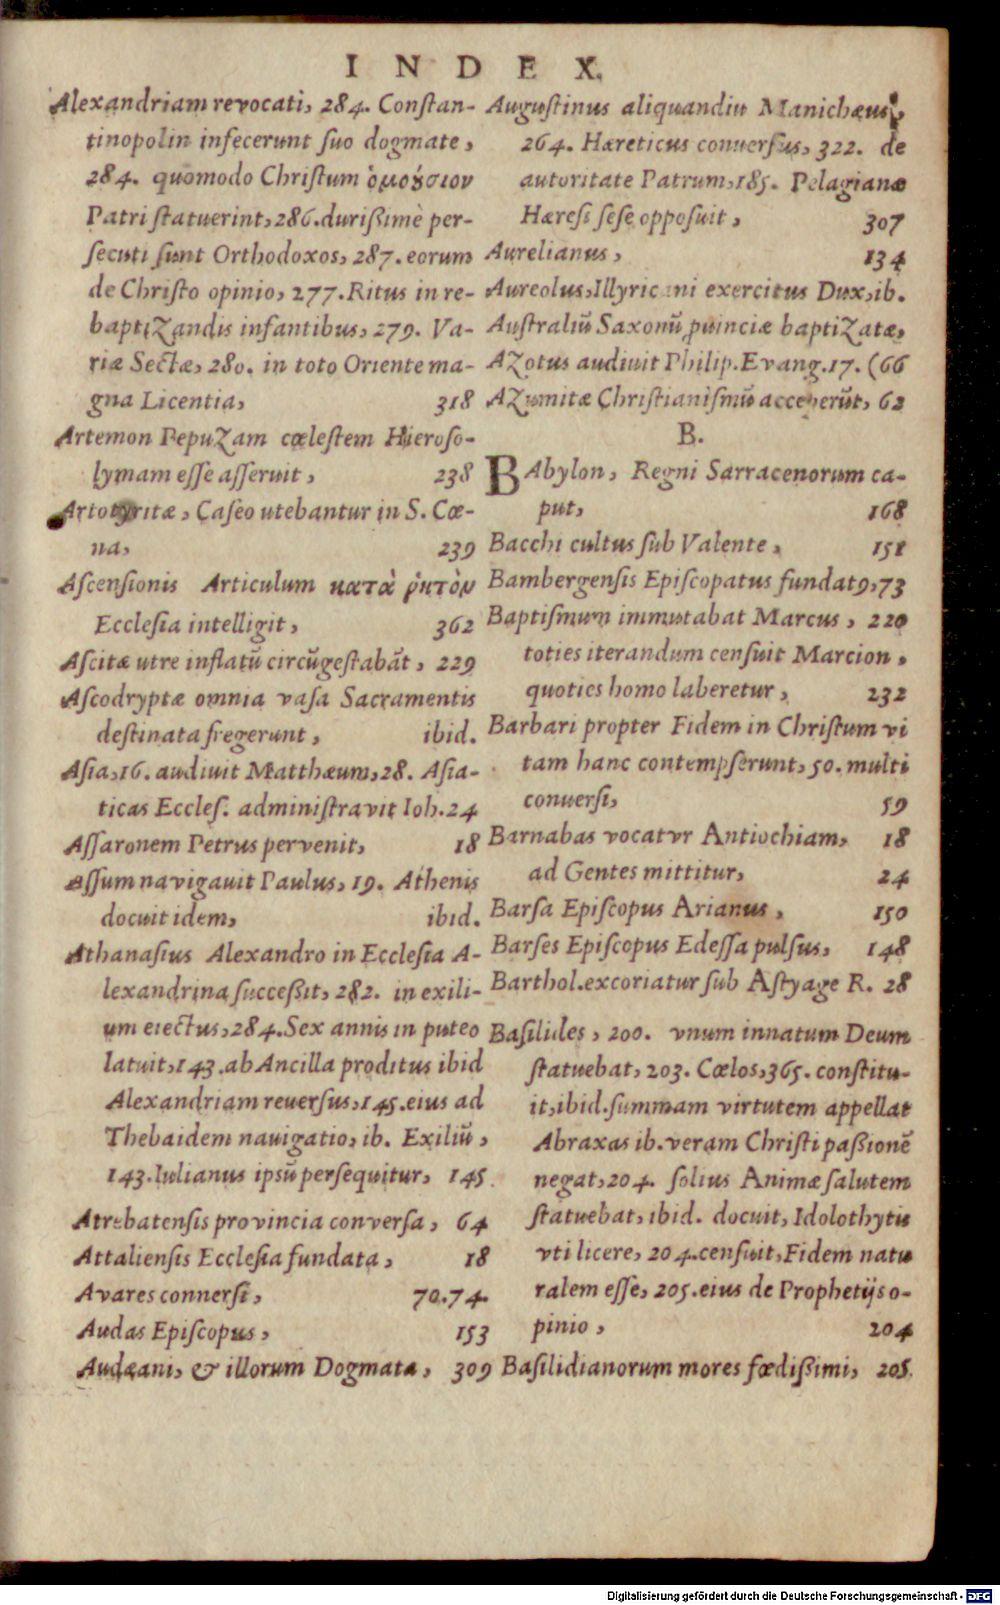 INDEX.
Alexandriam revocati, 284. Constan-
tinopolin infecerunt suo dogmate,
284. quomodo Christum ὁμούσιον
Patri statuerint, 286. durißimè per-
secuti sunt Orthodoxos, 287. eorum
de Christo opinio, 277. Ritus in re-
baptizandis infantibus, 279. Va-
riæ Sectæ, 280. in toto Oriente ma-
gna Licentia, 318
Artemon Pepuzam cœlestem Hieroso-
lymam esse asseruit, 238
Artotyritæ, Caseo utebantur in S. Cœ-
na, 239
Ascensionis Articulum κατὰ ῥητὸν
Ecclesia intelligit, 362
Ascitæ utre inflatū circūgestabāt, 229
Ascodryptæ omnia vasa Sacramentis
destinata fregerunt, ibid.
Asia, 16. audiuit Matthæum, 28. Asia-
ticas Eccles. administravit Ioh. 24
Assaronem Petrus pervenit, 18
assum navigauit Paulus, 19. Athenis
docuit idem, ibid.
Athanasius Alexandro in Ecclesia A-
lexandrina succeßit, 282. in exili-
um eiectus, 284. Sex annis in puteo
latuit, 143. ab Ancilla proditus ibid
Alexandriam reuersus, 145. eius ad
Thebaidem nauigatio, ib. Exiliū,
143. Iulianus ipsū persequitur, 145.
Atrebatensis provincia conversa, 64
Attaliensis Ecclesia fundata, 18
Avares connersi, 70.74.
Audas Episcopus, 153
Audæani, & illorum Dogmata, 309
Augustinus aliquandiu Manichæus,
264. Hæreticus conuersus, 322. de
autoritate Patrum, 185. Pelagianæ
Hæresi sese opposuit, 307
Aurelianus, 134
Aureolus, Illyricani exercitus Dux, ib.
Australiū Saxonū ꝓuinciæ baptizatæ,
Azotus audiuit Philip. Evang. 17. (66
Azumitæ Christianismū acceperūt, 62
B.
BAbylon, Regni Sarracenorum ca-
put, 168
Bacchi cultus sub Valente, 151
Bambergensis Episcopatus fundatꝰ, 73
Baptismum immutabat Marcus, 220
toties iterandum censuit Marcion,
quoties homo laberetur, 232
Barbari propter Fidem in Christum vi
tam hanc contempserunt, 50. multi
conuersi, 59
Barnabas vocatvr Antiochiam, 18
ad Gentes mittitur, 24
Barsa Episcopus Arianus, 150
Barses Episcopus Edessa pulsus, 148
Barthol. excoriatur sub Astyage R. 28
Basilides, 200. vnum innatum Deum
statuebat, 203. Cœlos, 365. constitu-
it, ibid. summam virtutem appellat
Abraxas ib. veram Christi paßionē
negat, 204. solius Animæ salutem
statuebat, ibid. docuit, Idolothytis
vti licere, 204. censuit, Fidem natu
ralem esse, 205. eius de Prophetijs o-
pinio, 204
Basilidianorum mores fœdißimi, 205.
Digitalisierung gefördert durch die Deutsche Forschungsgemeinschaft - DFG